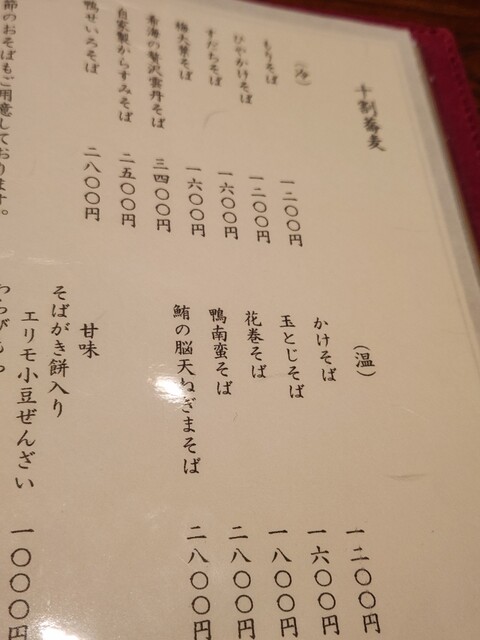 十割蕎麦
（冷）
もりそば 一二〇〇円
ひやかけそば 一二〇〇円
すだちそば 一六〇〇円
梅大葉そば 一六〇〇円
希海の贅沢雲丹そば 三四〇〇円
自家製からすみそば 二五〇〇円
鴨せいろそば 二八〇〇円
節のおそばもご用意しております。
（温）
かけそば 一二〇〇円
玉とじそば 一六〇〇円
花巻そば 一八〇〇円
鴨南蛮そば 二八〇〇円
鮪の脳天ねぎまそば 二八〇〇円
甘味
そばがき餅入り
エリモ小豆ぜんざい 一〇〇〇円